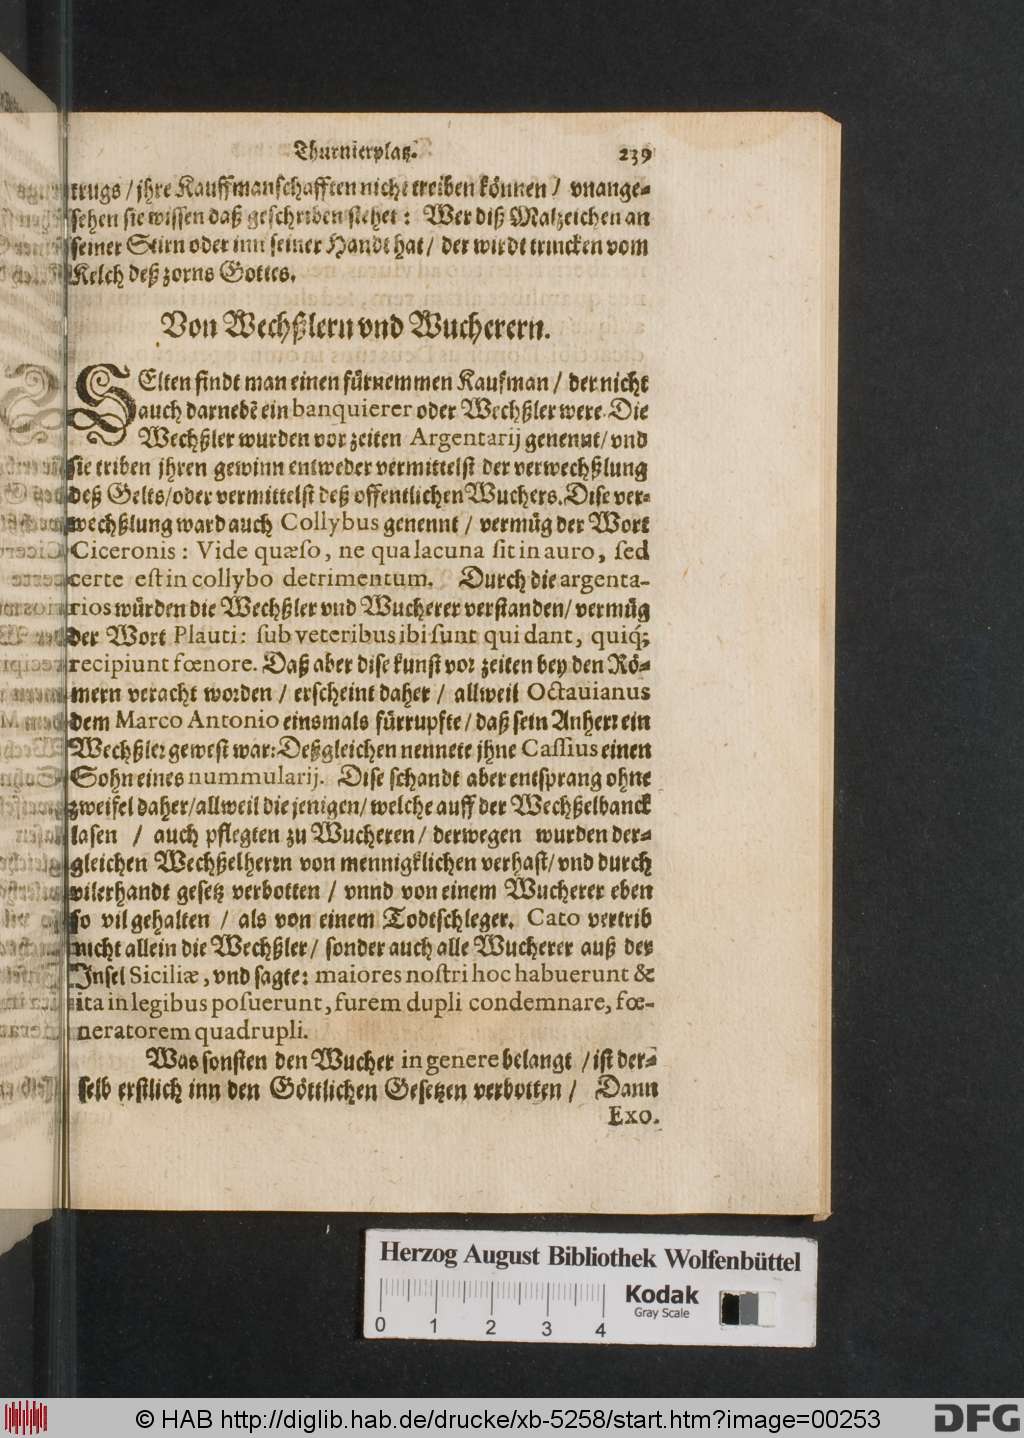 Thurnierplatz. 239
trugs / jhre Kauffmanschafften nicht treiben können / vnange-
sehen sie wissen daß geschriben stehet: Wer diß Malzeichen an
seiner Stirn oder inn seiner Handt hat / der wirdt trincken vom
Kelch deß zorns Gottes.
Von Wechßlern vnd Wucherern.
SElten findt man einen fürnemmen Kaufman / der nicht
auch darnebẽ ein banquierer oder Wechßler were. Die
Wechßler wurden vor zeiten Argentarij genennt / vnd
sie triben jhren gewinn entweder vermittelst der verwechßlung
deß Gelts / oder vermittelst deß offentlichen Wuchers. Dise ver-
wechßlung ward auch Collybus genennt / vermüg der Wort
Ciceronis: Vide quæso, ne qua lacuna sit in auro, sed
certe est in collybo detrimentum. Durch die argenta-
rios würden die Wechßler vnd Wucherer verstanden / vermüg
der Wort Plauti: sub veteribus ibi sunt qui dant, quiq́;
recipiunt fœnore. Daß aber dise kunst vor zeiten bey den Rö-
mern veracht worden / erscheint daher / allweil Octauianus
dem Marco Antonio einsmals fürrupfte / daß sein Anherr ein
Wechßler gewest war: Deßgleichen nennete jhne Cassius einen
Sohn eines nummularij. Dise schandt aber entsprang ohne
zweifel daher / allweil die jenigen / welche auff der Wechßelbanck
sasen / auch pflegten zu Wucheren / derwegen wurden der-
gleichen Wechßelherrn von mennigklichen verhast / vnd durch
vilerhandt gesetz verbotten / vnnd von einem Wucherer eben
so vil gehalten / als von einem Todtschleger. Cato vertrib
nicht allein die Wechßler / sonder auch alle Wucherer auß der
Insel Siciliæ, vnd sagte: maiores nostri hoc habuerunt &
ita in legibus posuerunt, furem dupli condemnare, fœ-
neratorem quadrupli.
Was sonsten den Wucher in genere belangt / ist der-
selb erstlich inn den Göttlichen Gesetzen verbotten / Dann
Exo.
Herzog August Bibliothek Wolfenbüttel
Kodak
Gray Scale
0 1 2 3 4
© HAB http://diglib.hab.de/drucke/xb-5258/start.htm?image=00253
DFG